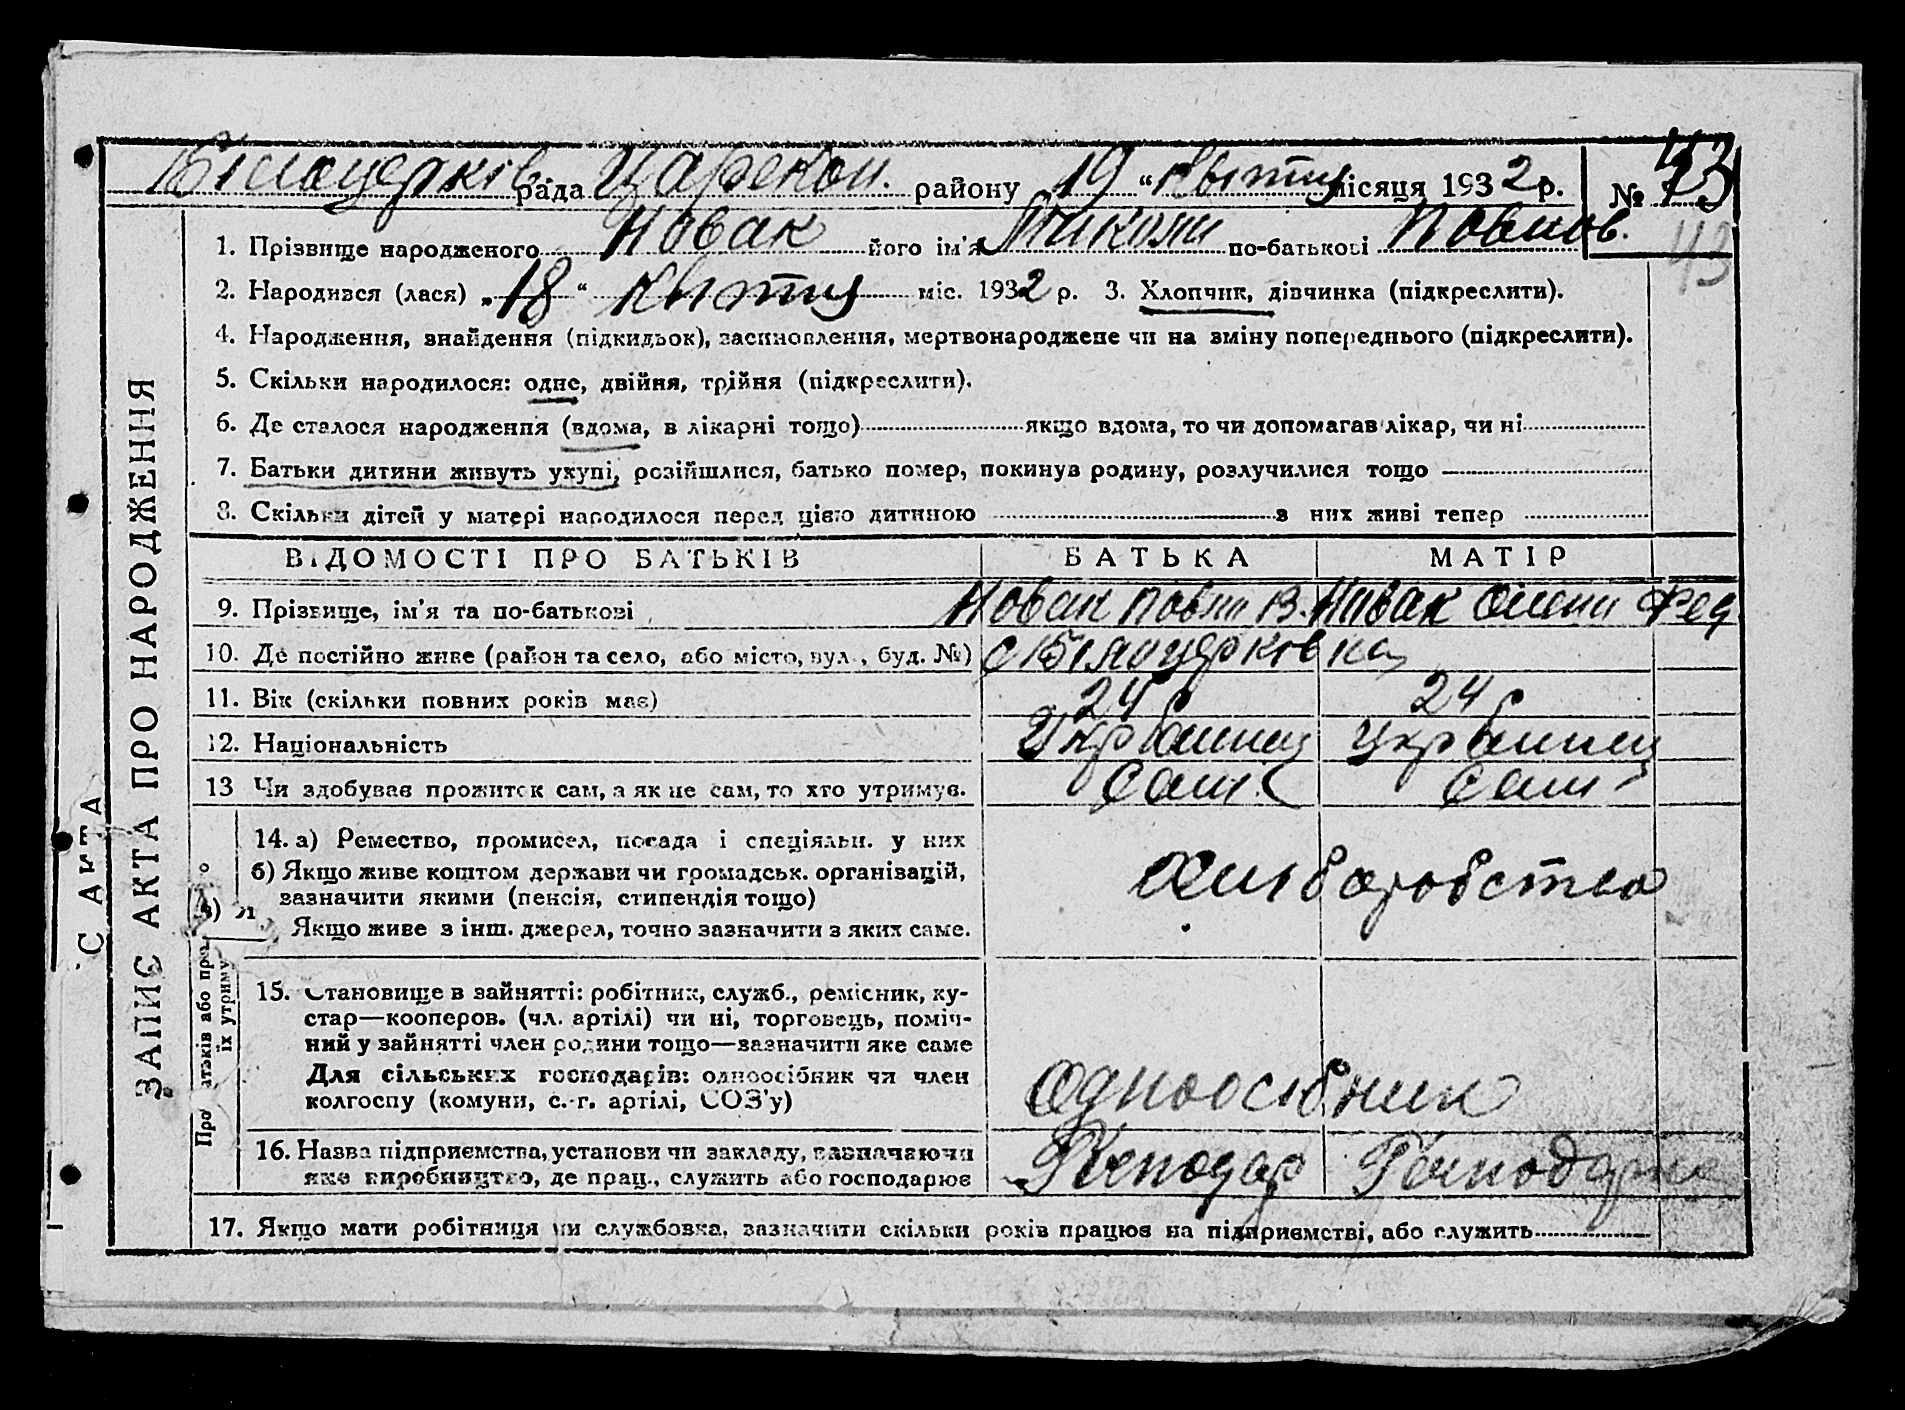 Білоцерків. рада Царекон. району 19 " квітня місяця 1932 р. № 43
43
1. Прізвище народженого Новак його ім'я Микола по-батькові Павлов.
2. Народився (лася) „18“ квітня міс. 1932 р. 3. Хлопчик, дівчинка (підкреслити).
4. Народження, знайдення (підкидьок), засиновлення, мертвонароджене чи на зміну попереднього (підкреслити).
5. Скільки народилося: одне, двійня, трійня (підкреслити).
6. Де сталося народження (вдома, в лікарні тощо) якщо вдома, то чи допомагав лікар, чи ні
7. Батьки дитини живуть укупі, розійшлися, батько помер, покинув родину, розлучилися тощо
8. Скільки дітей у матері народилося перед цією дитиною з них живі тепер
ЗАПИС АКТА ПРО НАРОДЖЕННЯ
ВІДОМОСТІ ПРО БАТЬКІВ БАТЬКА МАТІР
9. Прізвище, ім'я та по-батькові Новак Павло В. Новак Олена Фед
10. Де постійно живе (район та село, або місто, вул., буд. №) с Білоцерківка
11. Вік (скільки повних років має) 24 р 24 р
12. Національність Українец Українец
13 Чи здобував прожиток сам, а як не сам, то хто утримув. Сам Сам
14. а) Ремество, промисел, посада і спеціяльн. у них
б) Якщо живе коштом держави чи громадськ. організацій,
зазначити якими (пенсія, стипендія тощо) Хліборобство
Якщо живе з інш. джерел, точно зазначити з яких саме.
15. Становище в зайнятті: робітник, служб., ремісник, ку-
стар—кооперов. (чл. артілі) чи ні, торговець, поміч-
ний у зайнятті член родини тощо—зазначити яке саме
Для сільських господарів: одноосібник чи член
колгоспу (комуни, с.-г. артілі, СОЗ'у) Одноосібник
16. Назва підприємства, установи чи закладу, зазначаючи
яке виробництво, де прац., служить або господарює Господар Господарка
17. Якщо мати робітниця чи службовка, зазначити скільки років працює на підприємстві, або служить